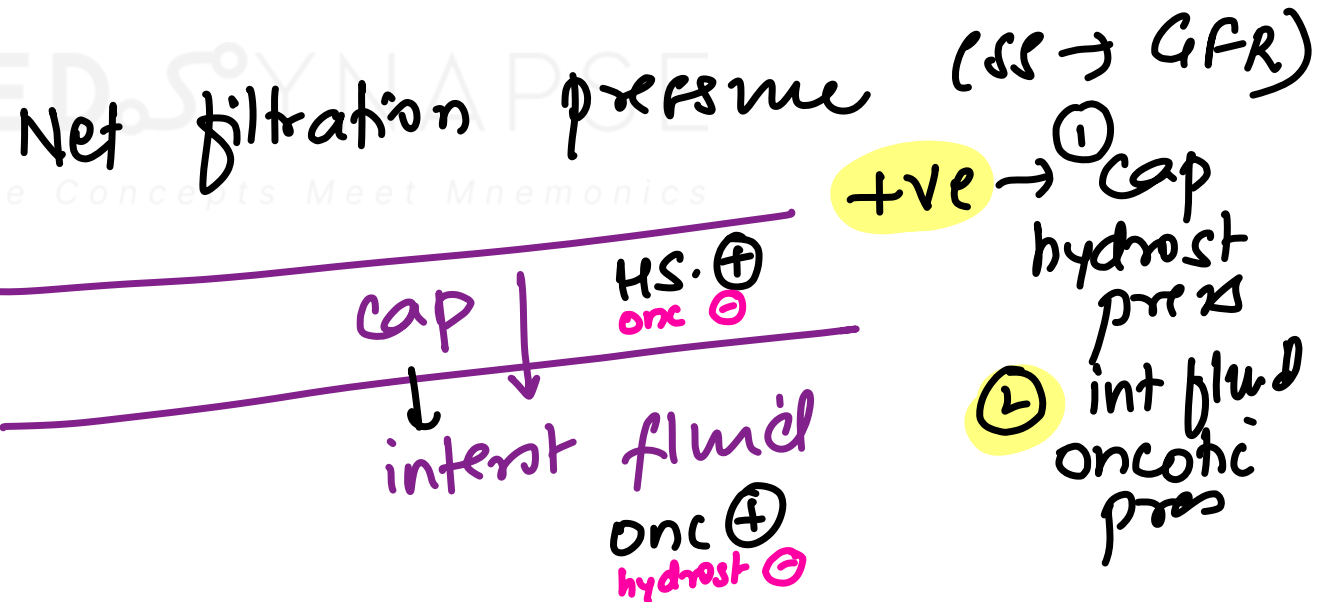 ED.SYNAPSE
e Concepts Meet Mnemonics
Net filtration pressure
(SS → GFR)
+ve → ① cap
hydrost
press
② int fluid
oncotic
pres
cap
HS. ⊕
onc ⊖
interst fluid
onc ⊕
hydrost ⊖